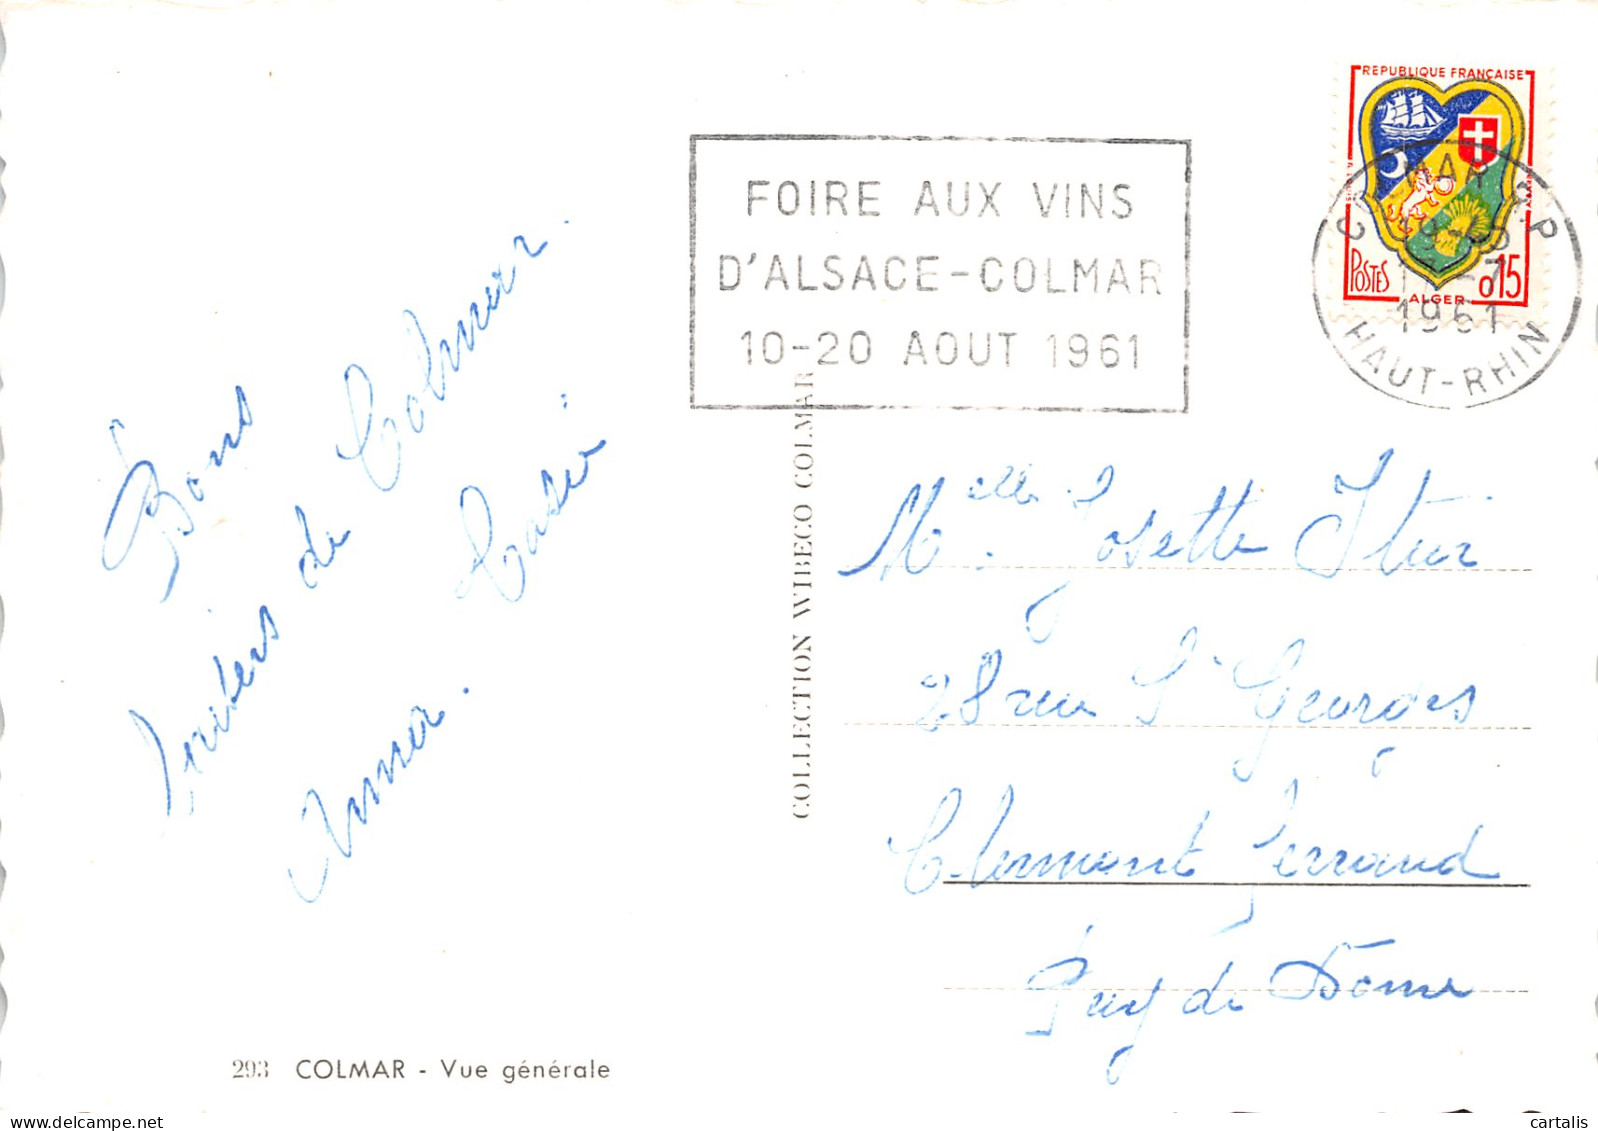 REPUBLIQUE FRANÇAISE
POSTES
ALGER
0,15
FOIRE AUX VINS
D'ALSACE-COLMAR
10-20 AOUT 1961
COLMAR R.P
1961
HAUT-RHIN
Bons
baisers de Colmar.
Anna.
COLLECTION WIBECO COLMAR
Melle. Josette
28 rue St Georges
Clermont Ferrand
Puy de Dome
293 COLMAR - Vue générale
cartalis